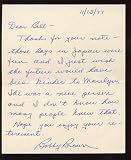 11/10/77
Dear Bill -
Thanks for your note
those days in Japan were
fun and I just wish
the future would have
been kinder to Marilyn
She was a nice person
and I don't know how
many people knew that
Hope you enjoy your re-
tirement
Bobby Brown